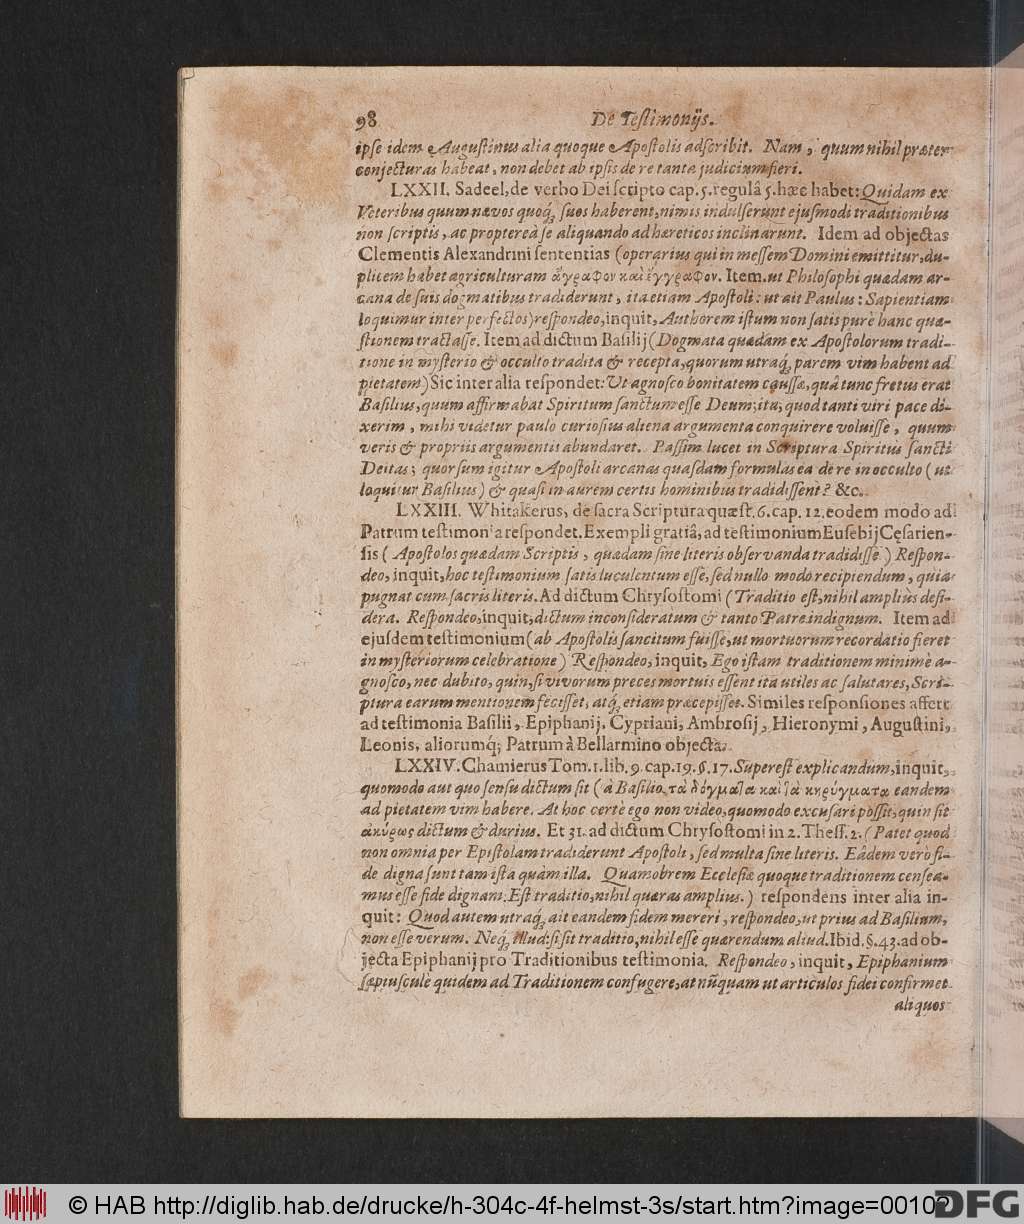 98 De Testimonijs.
ipse idem Augustinus alia quoque Apostolis adscribit. Nam, quum nihil præter
conjecturas habeat, non debet ab ipsis de re tanta judicium fieri.
LXXII. Sadeel, de verbo Dei scripto cap. 5. regulâ 5. hæc habet: Quidam ex
Veteribus quum nævos quoq; suos haberent, nimis indulserunt ejusmodi traditionibus
non scriptis, ac proptereà se aliquando ad hæreticos inclinarunt. Idem ad objectas
Clementis Alexandrini sententias (operarius qui in messem Domini emittitur, du-
plicem habet agriculturam ἄγραφον καὶ ἔγγραφον. Item. ut Philosophi quædam ar-
cana de suis dogmatibus tradiderunt, ita etiam Apostoli: ut ait Paulus: Sapientiam
loquimur inter perfectos) respondeo, inquit, Authorem istum non satis purè hanc quæ-
stionem tractasse. Item ad dictum Basilij (Dogmata quædam ex Apostolorum tradi-
tione in mysterio & occulto tradita & recepta, quorum utraq; parem vim habent ad
pietatem) Sic inter alia respondet: Ut agnosco bonitatem caussæ, quâ tunc fretus erat
Basilius, quum affirmabat Spiritum sanctum esse Deum; ita, quod tanti viri pace di-
xerim, mihi videtur paulo curiosius aliena argumenta conquirere voluisse, quum
veris & propriis argumentis abundaret. Passim lucet in Scriptura Spiritus sancti
Deitas; quorsum igitur Apostoli arcanas quasdam formulas ea de re in occulto (ut
loquitur Basilius) & quasi in aurem certis hominibus tradidissent? &c.
LXXIII. Whitakerus, de sacra Scriptura quæst. 6. cap. 12. eodem modo ad
Patrum testimonia respondet. Exempli gratiâ, ad testimonium Eusebij Cęsarien-
sis (Apostolos quædam Scriptis, quædam sine literis observanda tradidisse) Respon-
deo, inquit, hoc testimonium satis luculentum esse, sed nullo modo recipiendum, quia
pugnat cum sacris literis. Ad dictum Chrysostomi (Traditio est, nihil amplius desi-
dera. Respondeo, inquit, dictum inconsideratum & tanto Patre indignum. Item ad
ejusdem testimonium (ab Apostolis sancitum fuisse, ut mortuorum recordatio fieret
in mysteriorum celebratione) Respondeo, inquit, Ego istam traditionem minimè a-
gnosco, nec dubito, quin, si vivorum preces mortuis essent ita utiles ac salutares, Scri-
ptura earum mentionem fecisset, atq; etiam præcepisset. Similes responsiones affert
ad testimonia Basilii, Epiphanij, Cypriani, Ambrosij, Hieronymi, Augustini,
Leonis, aliorumq; Patrum à Bellarmino objecta.
LXXIV. Chamierus Tom. 1. lib. 9. cap. 19. §. 17. Superest explicandum, inquit,
quomodo aut quo sensu dictum sit (à Basilio τὰ δόγματα καὶ τὰ κηρύγματα eandem
ad pietatem vim habere. At hoc certè ego non video, quomodo excusari possit, quin sit
ἀκύρως dictum & durius. Et 31. ad dictum Chrysostomi in 2. Thess. 2. (Patet quod
non omnia per Epistolam tradiderunt Apostoli, sed multa sine literis. Eâdem verò fi-
de digna sunt tam ista quàm illa. Quamobrem Ecclesiæ quoque traditionem censea-
mus esse fide dignam. Est traditio, nihil quæras amplius.) respondens inter alia in-
quit: Quod autem utraq; ait eandem fidem mereri, respondeo, ut prius ad Basilium,
non esse verum. Neq; illud: si sit traditio, nihil esse quærendum aliud. Ibid. §. 43. ad ob-
jecta Epiphanij pro Traditionibus testimonia. Respondeo, inquit, Epiphanium
sæpiusculè quidem ad Traditionem confugere, at nũquam ut articulos fidei confirmet
aliquos
© HAB http://diglib.hab.de/drucke/h-304c-4f-helmst-3s/start.htm?image=00102
DFG